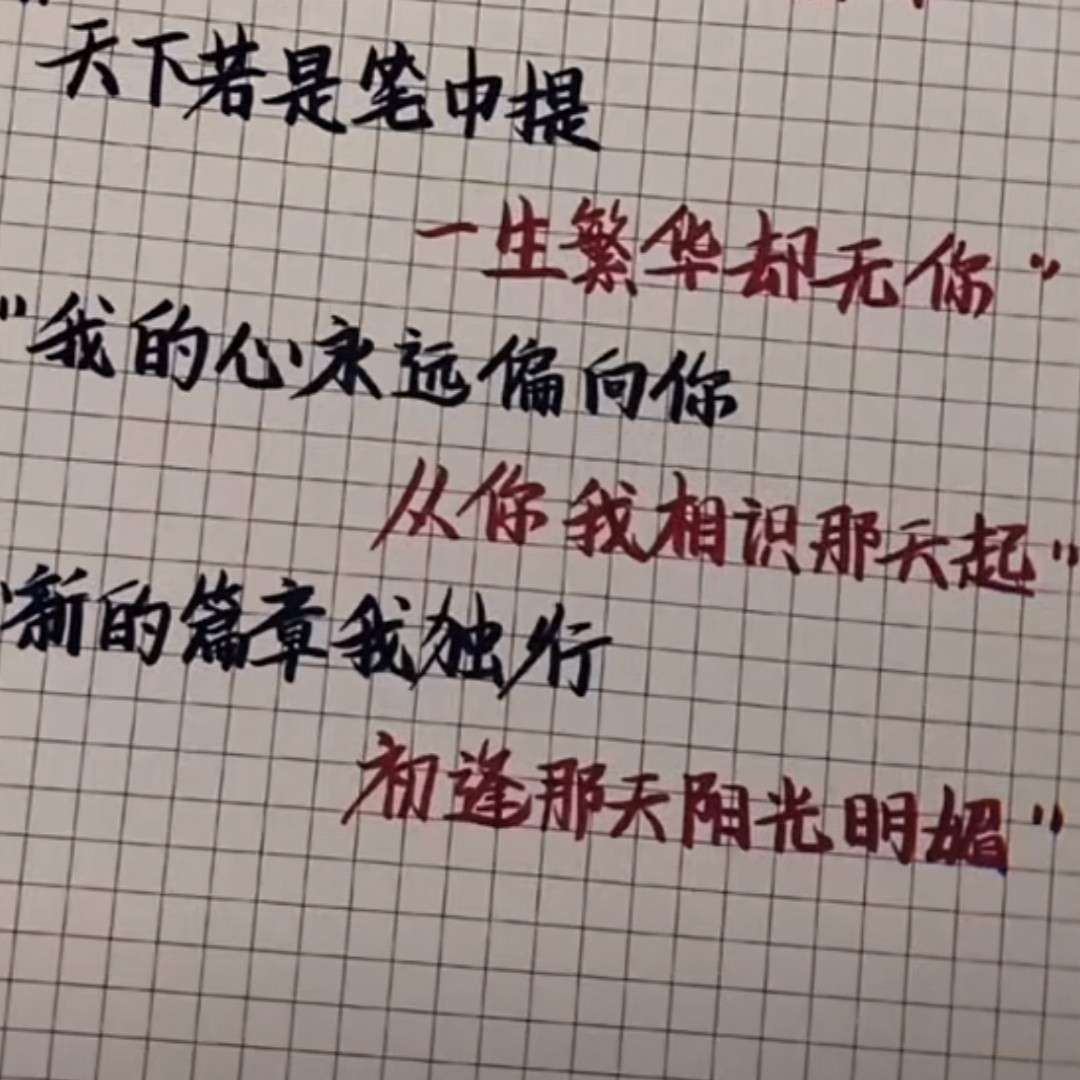 天下若是笔中提
一生繁华却无你"
"我的心永远偏向你
从你我相识那天起"
"新的篇章我独行
初逢那天阳光明媚"